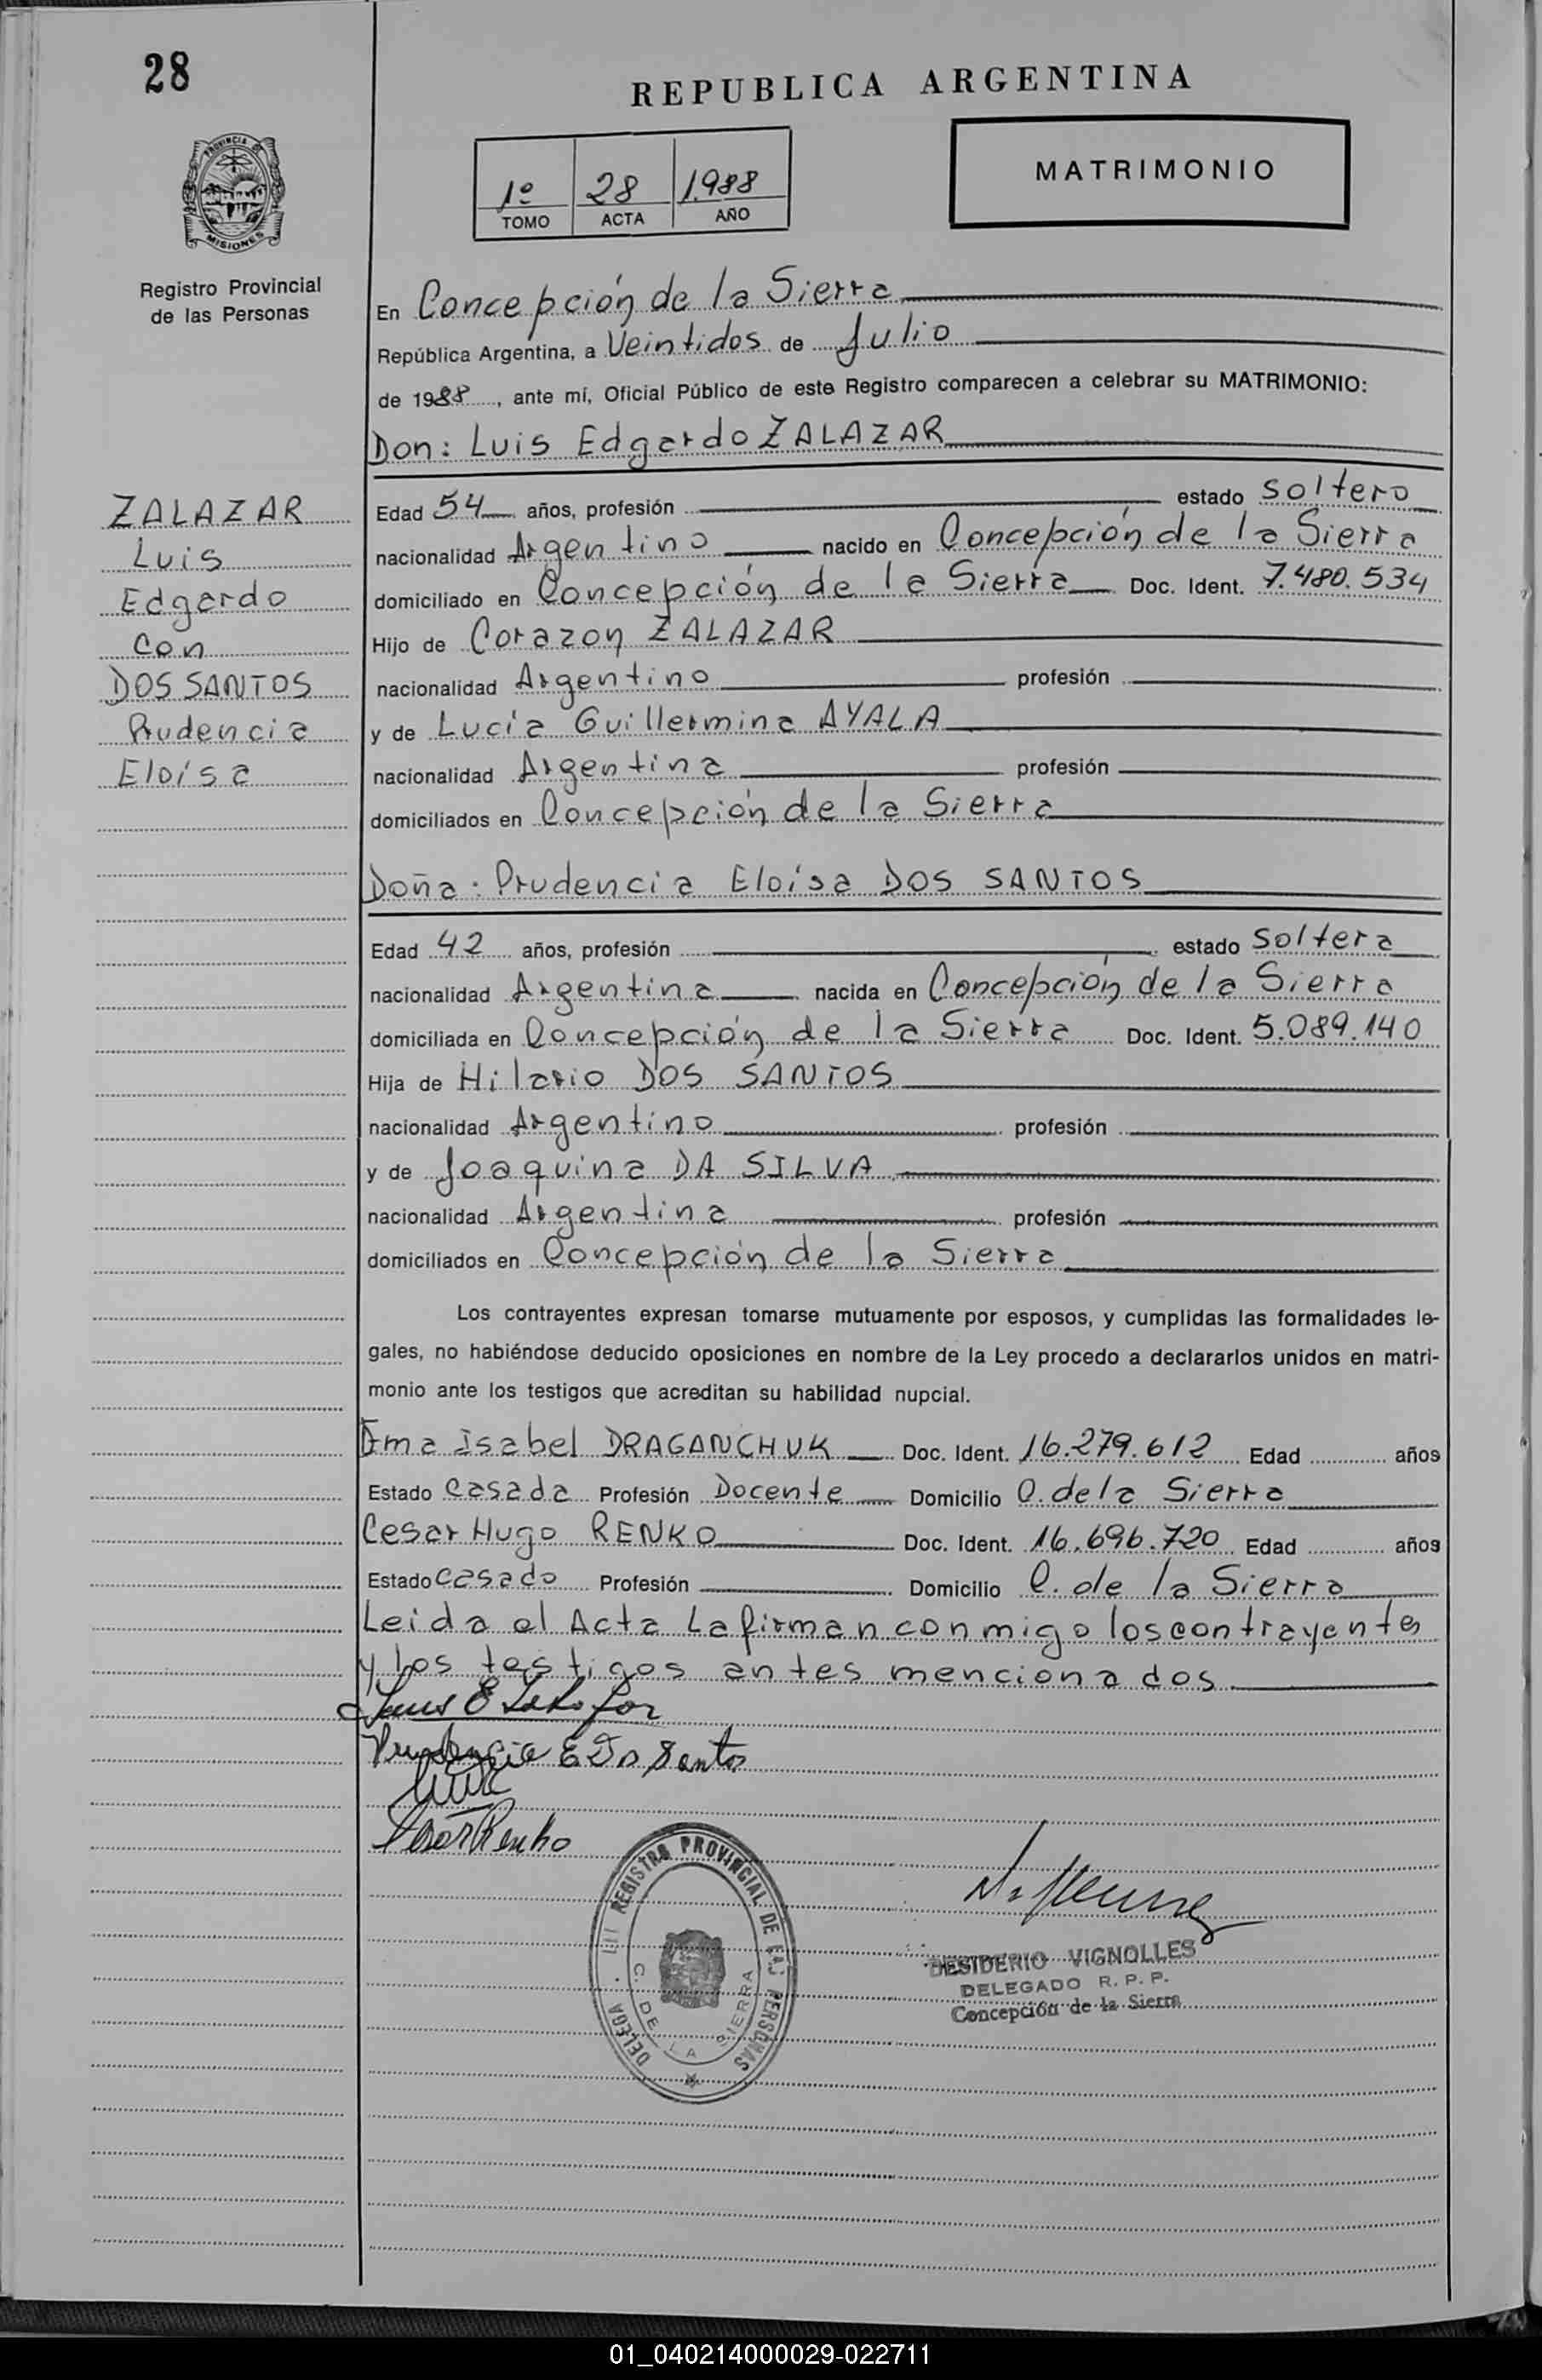 28
REPUBLICA ARGENTINA
PROVINCIA DE
MISIONES
1º 28 1.988
TOMO ACTA AÑO
MATRIMONIO
Registro Provincial
de las Personas
En Concepción de la Sierra
República Argentina, a Veintidos de Julio
de 1988, ante mí, Oficial Público de este Registro comparecen a celebrar su MATRIMONIO:
Don: Luis Edgardo ZALAZAR
ZALAZAR
Luis
Edgardo
con
DOS SANTOS
Prudencia
Eloísa
Edad 54 años, profesión estado soltero
nacionalidad Argentino nacido en Concepción de la Sierra
domiciliado en Concepción de la Sierra Doc. Ident. 7.480.534
Hijo de Corazon ZALAZAR
nacionalidad Argentino profesión
y de Lucía Guillermina AYALA
nacionalidad Argentina profesión
domiciliados en Concepción de la Sierra
Doña: Prudencia Eloísa DOS SANTOS
Edad 42 años, profesión estado soltera
nacionalidad Argentina nacida en Concepción de la Sierra
domiciliada en Concepción de la Sierra Doc. Ident. 5.089.140
Hija de Hilario DOS SANTOS
nacionalidad Argentino profesión
y de Joaquina DA SILVA
nacionalidad Argentina profesión
domiciliados en Concepción de la Sierra
Los contrayentes expresan tomarse mutuamente por esposos, y cumplidas las formalidades le-
gales, no habiéndose deducido oposiciones en nombre de la Ley procedo a declararlos unidos en matri-
monio ante los testigos que acreditan su habilidad nupcial.
Ema Isabel DRAGANCHUK Doc. Ident. 16.279.612 Edad años
Estado casada Profesión Docente Domicilio C. de la Sierra
Cesar Hugo RENKO Doc. Ident. 16.696.720 Edad años
Estado casado Profesión Domicilio C. de la Sierra
Leida el Acta La firman conmigo los contrayentes
y los testigos antes mencionados
Luis E
Prudencia E Dos Santos
Cesar Renko
REGISTRO PROVINCIAL DE LAS PERSONAS
DELEGA
C. DE LA SIERRA
DESIDERIO VIGNOLLES
DELEGADO R. P. P.
Concepción de la Sierra
01_040214000029-022711